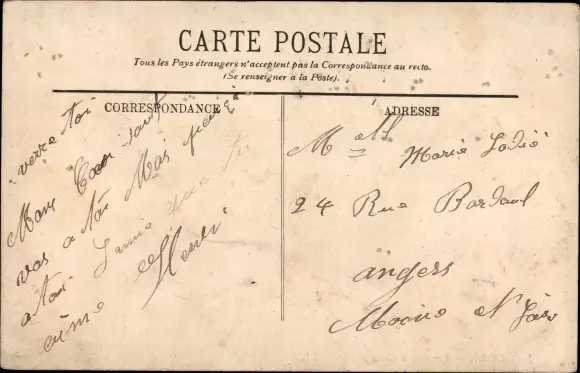 CARTE POSTALE
Tous les Pays étrangers n'acceptent pas la Correspondance au recto.
(Se renseigner à la Poste).
CORRESPONDANCE
ADRESSE
verre toi
Mon Coeur tout
vas a toi Mes pensé
a toi
aime Henri
Melle Marie
24 Rue
angers
Maine et